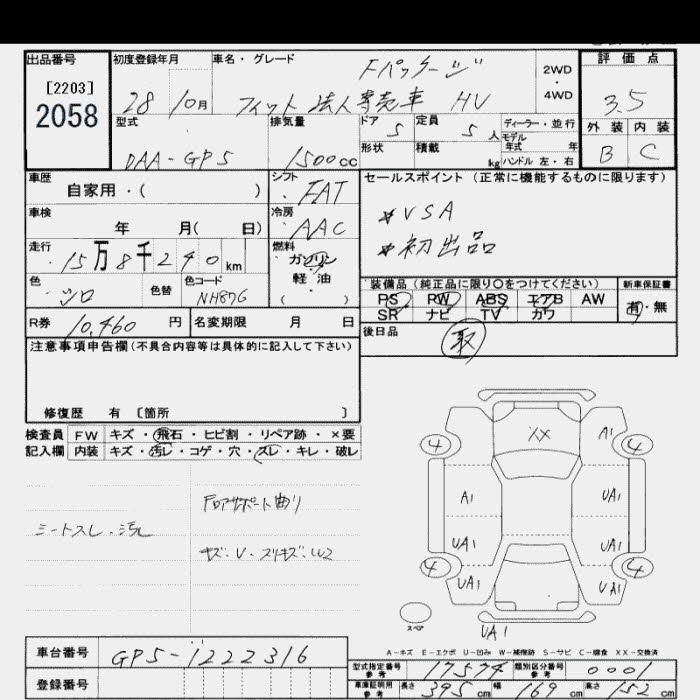 出品番号 初度登録年月 車名・グレード 評価点
[2203]
2058
28 10月 Fパッケージ
フィット 法人専売車 HV
2WD
・
4WD
3.5
型式 排気量 ドア 5 定員 5 人 ディーラー・並行
モデル
年式 年
外装 内装
B C
DAA-GP5 1500cc 形状 積載 kg ハンドル 左・右
車歴 シフト セールスポイント (正常に機能するものに限ります)
自家用・( ) FAT
*VSA
*初出品
車検 冷房
年 月( 日) AAC
走行 15万8千240km 燃料
ガソリン
軽・油
・( )
色 シロ 色替 色コード NH876
装備品(純正品に限り○をつけてください) 新車保証書
PS PW ABS エアB AW
SR ナビ TV カワ
有・無
R券 10,460 円 名変期限 月 日 後日品 取
注意事項申告欄(不具合内容等は具体的に記入して下さい)
修復歴 有 [箇所 ]
検査員 FW キズ・飛石・ヒビ割・リペア跡・×要
記入欄 内装 キズ・汚レ・コゲ・穴・スレ・キレ・破レ
シートスレ・汚レ
Fロアサポート曲り
キズ・V・スリキズ・W2
XX
4 A1 4
A1 UA1
UA1 UA1
4 UA1 UA1 4
スペア
UA1
A-キズ E-エクボ U-凹み W-補修跡 S-サビ C-腐食 XX-交換済
車台番号 GP5-1222316
登録番号
型式指定番号 参考 17574 類別区分番号 参考 0001
車庫証明用 参考 長さ 395cm 幅 169cm 高さ 152cm